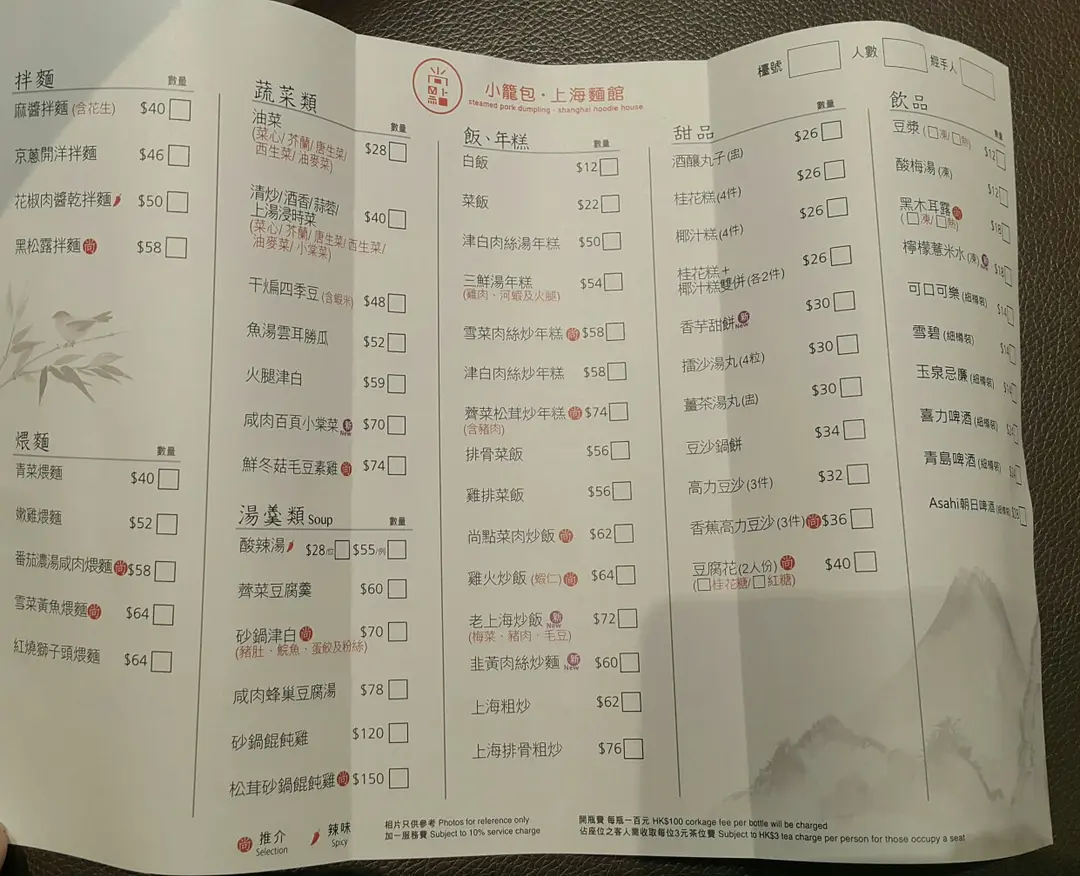 拌麵 數量
麻醬拌麵 (含花生) $40
京蔥開洋拌麵 $46
花椒肉醬乾拌麵 $50
黑松露拌麵 尚 $58
煨麵 數量
青菜煨麵 $40
嫩雞煨麵 $52
番茄濃湯咸肉煨麵 尚 $58
雪菜黃魚煨麵 尚 $64
紅燒獅子頭煨麵 $64
蔬菜類 數量
油菜 $28
(菜心/芥蘭/唐生菜/
西生菜/油麥菜)
清炒/酒香/蒜蓉/
上湯浸時菜 $40
(菜心/芥蘭/唐生菜/西生菜/
油麥菜/小棠菜)
干煸四季豆 (含蝦米) $48
魚湯雲耳勝瓜 $52
火腿津白 $59
咸肉百頁小棠菜 新 New $70
鮮冬菇毛豆素雞 尚 $74
湯羹類 Soup 數量
酸辣湯 $28/位 $55/例
薺菜豆腐羹 $60
砂鍋津白 尚 $70
(豬肚、鯇魚、蛋餃及粉絲)
咸肉蜂巢豆腐湯 $78
砂鍋餛飩雞 $120
松茸砂鍋餛飩雞 尚 $150
尚 推介 Selection
辣味 Spicy
小籠包·上海麵館
steamed pork dumpling · shanghai noodle house
飯、年糕 數量
白飯 $12
菜飯 $22
津白肉絲湯年糕 $50
三鮮湯年糕 $54
(雞肉、河蝦及火腿)
雪菜肉絲炒年糕 尚 $58
津白肉絲炒年糕 $58
薺菜松茸炒年糕 尚 $74
(含豬肉)
排骨菜飯 $56
雞排菜飯 $56
尚點菜肉炒飯 尚 $62
雞火炒飯 (蝦仁) 尚 $64
老上海炒飯 新 New $72
(梅菜、豬肉、毛豆)
韭黃肉絲炒麵 新 New $60
上海粗炒 $62
上海排骨粗炒 $76
相片只供參考 Photos for reference only
加一服務費 Subject to 10% service charge
檯號 人數 經手人
甜品 數量
酒釀丸子 (盅) $26
桂花糕 (4件) $26
椰汁糕 (4件) $26
桂花糕+
椰汁糕雙併 (各2件) $26
香芋甜餅 新 New $30
擂沙湯丸 (4粒) $30
薑茶湯丸 (盅) $30
豆沙鍋餅 $34
高力豆沙 (3件) $32
香蕉高力豆沙 (3件) 尚 $36
豆腐花 (2人份) 尚 $40
(桂花糖/紅糖)
飲品 數量
豆漿 (凍/熱) $12
酸梅湯 (凍) $12
黑木耳露 尚 $18
(凍/熱)
檸檬薏米水 (凍) 新 New $18
可口可樂 (細樽裝) $14
雪碧 (細樽裝) $14
玉泉忌廉 (細樽裝)
喜力啤酒 (細樽裝)
青島啤酒 (細樽裝)
Asahi朝日啤酒 (細樽裝)
開瓶費 每瓶一百元 HK$100 corkage fee per bottle will be charged
佔座位之客人需收取每位3元茶位費 Subject to HK$3 tea charge per person for those occupy a seat